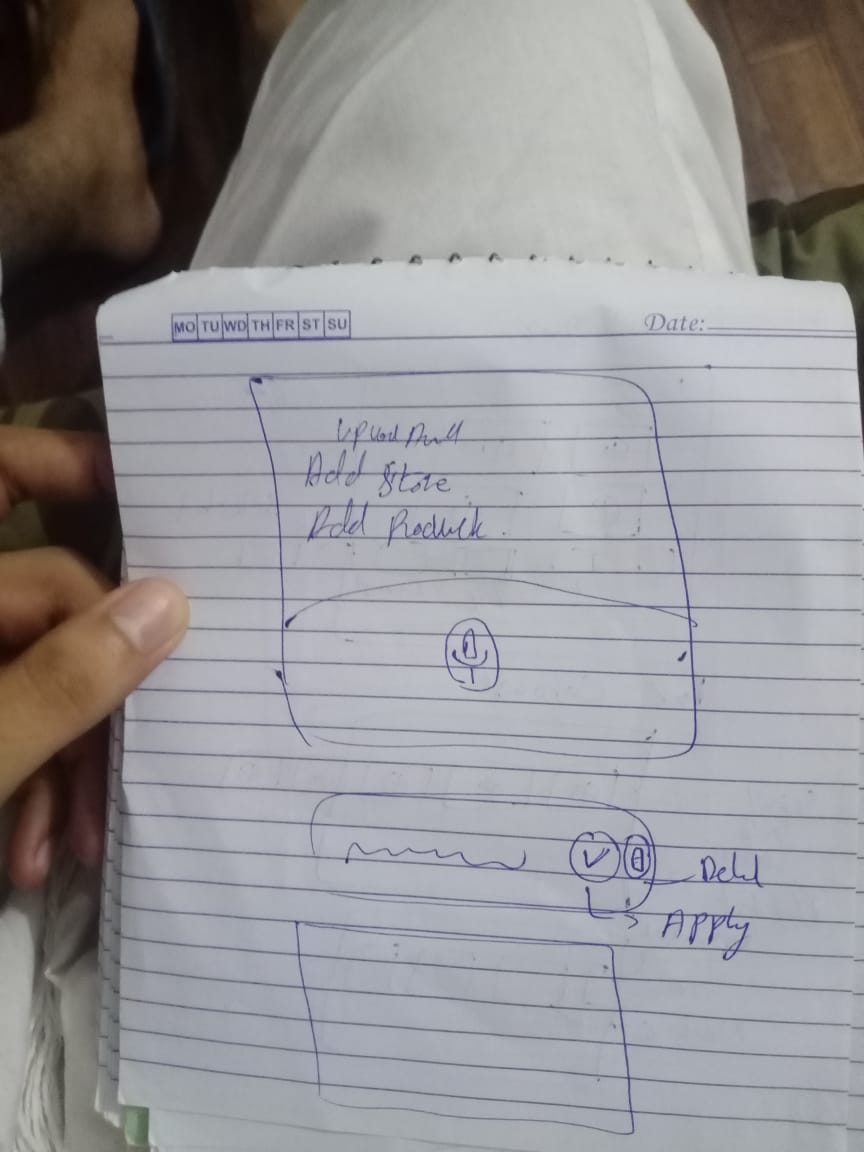 MO TU WD TH FR ST SU
Date:
Upload
Add Store
Add Product
Apply